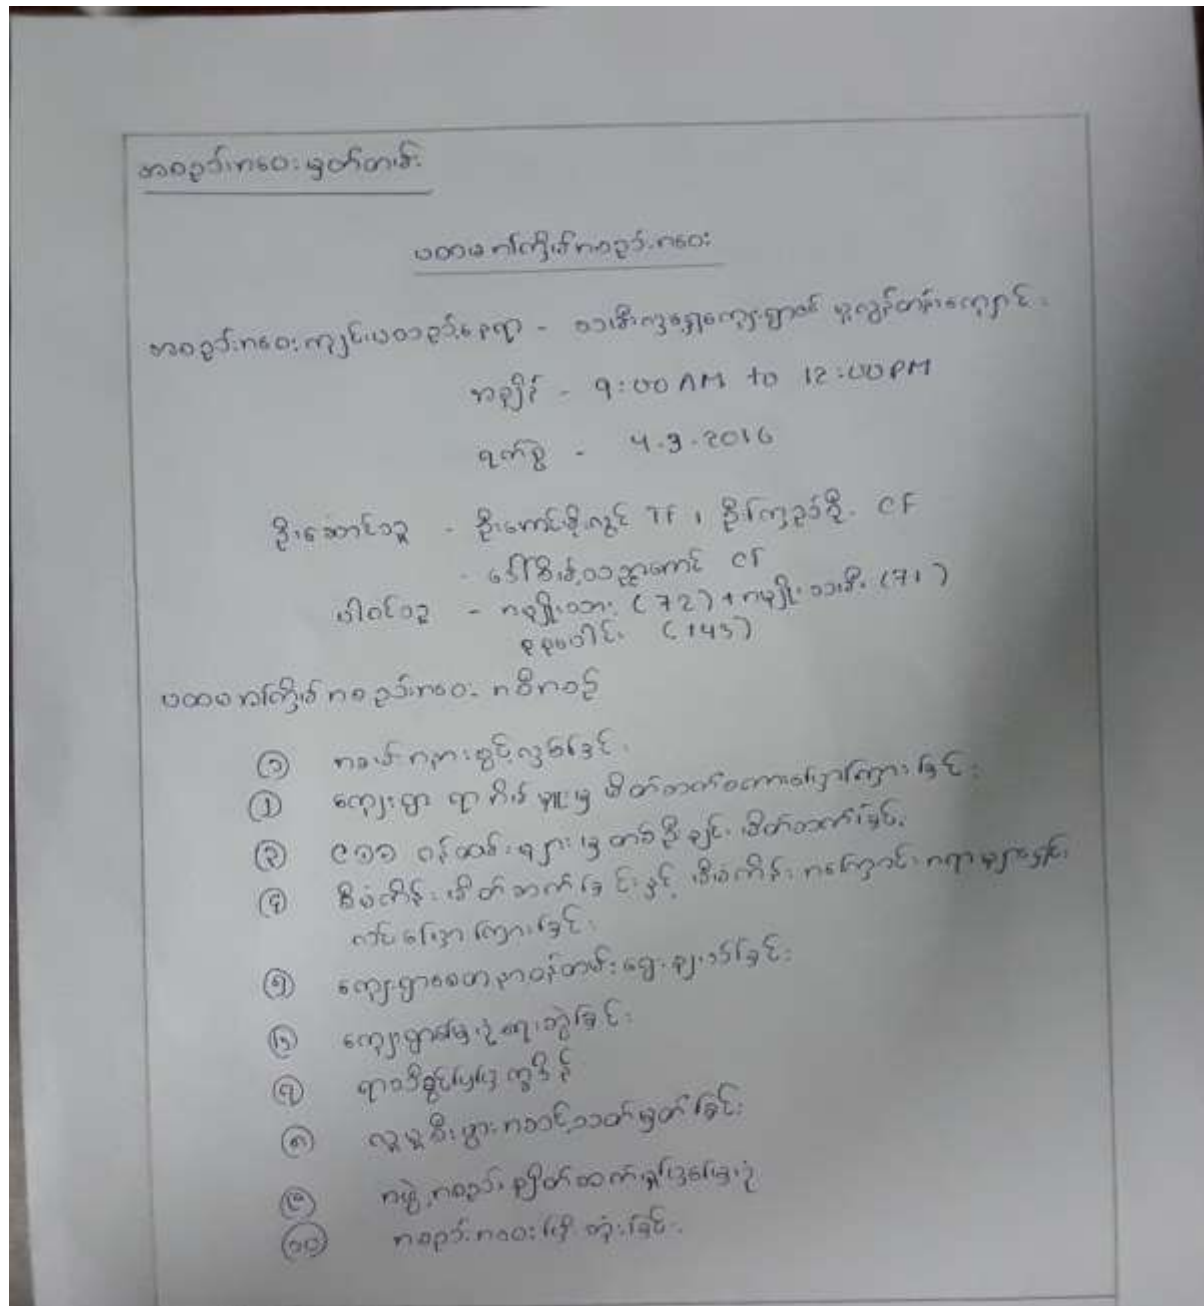 အစည်းအဝေး မှတ်တမ်း
ပထမအကြိမ်အစည်းအဝေး
အစည်းအဝေးကျင်းပသည့်နေရာ - မူလွန်တန်းကျောင်း
အချိန် - 9:00 AM to 12:00 PM
ရက်စွဲ - 4.3.2016
ဦးဆောင်သူ - ဦးအောင်မိုးလွင် TF ၊ CF
- CF
ပါဝင်သူ - အမျိုးသား (72) + အမျိုးသမီး (71)
စုစုပေါင်း (143)
ပထမအကြိမ် အစည်းအဝေး အစီအစဉ်
၁ အခမ်းအနားဖွင့်လှစ်ခြင်း
၂ ကျေးရွာ မှ မိတ်ဆက်စကားပြောကြားခြင်း
၃ ဝန်ထမ်းများမှ တစ်ဦးချင်း မိတ်ဆက်ခြင်း
၄ စီမံကိန်း မိတ်ဆက်ခြင်းနှင့် စီမံကိန်း အကြောင်းအရာများရှင်း
လင်းပြောကြားခြင်း
၅ ကျေးရွာစေတနာ့ဝန်ထမ်း ရွေးချယ်ခြင်း
၆ ကျေးရွာမြေပုံရေးဆွဲခြင်း
၇ ရာသီခွင်ပြပြက္ခဒိန်
၈ လူမှုစီးပွားအဆင့်သတ်မှတ်ခြင်း
၉ အဖွဲ့အစည်းချိတ်ဆက်မှုပြမြေပုံ
၁၀ အစည်းအဝေးပြီးဆုံးခြင်း